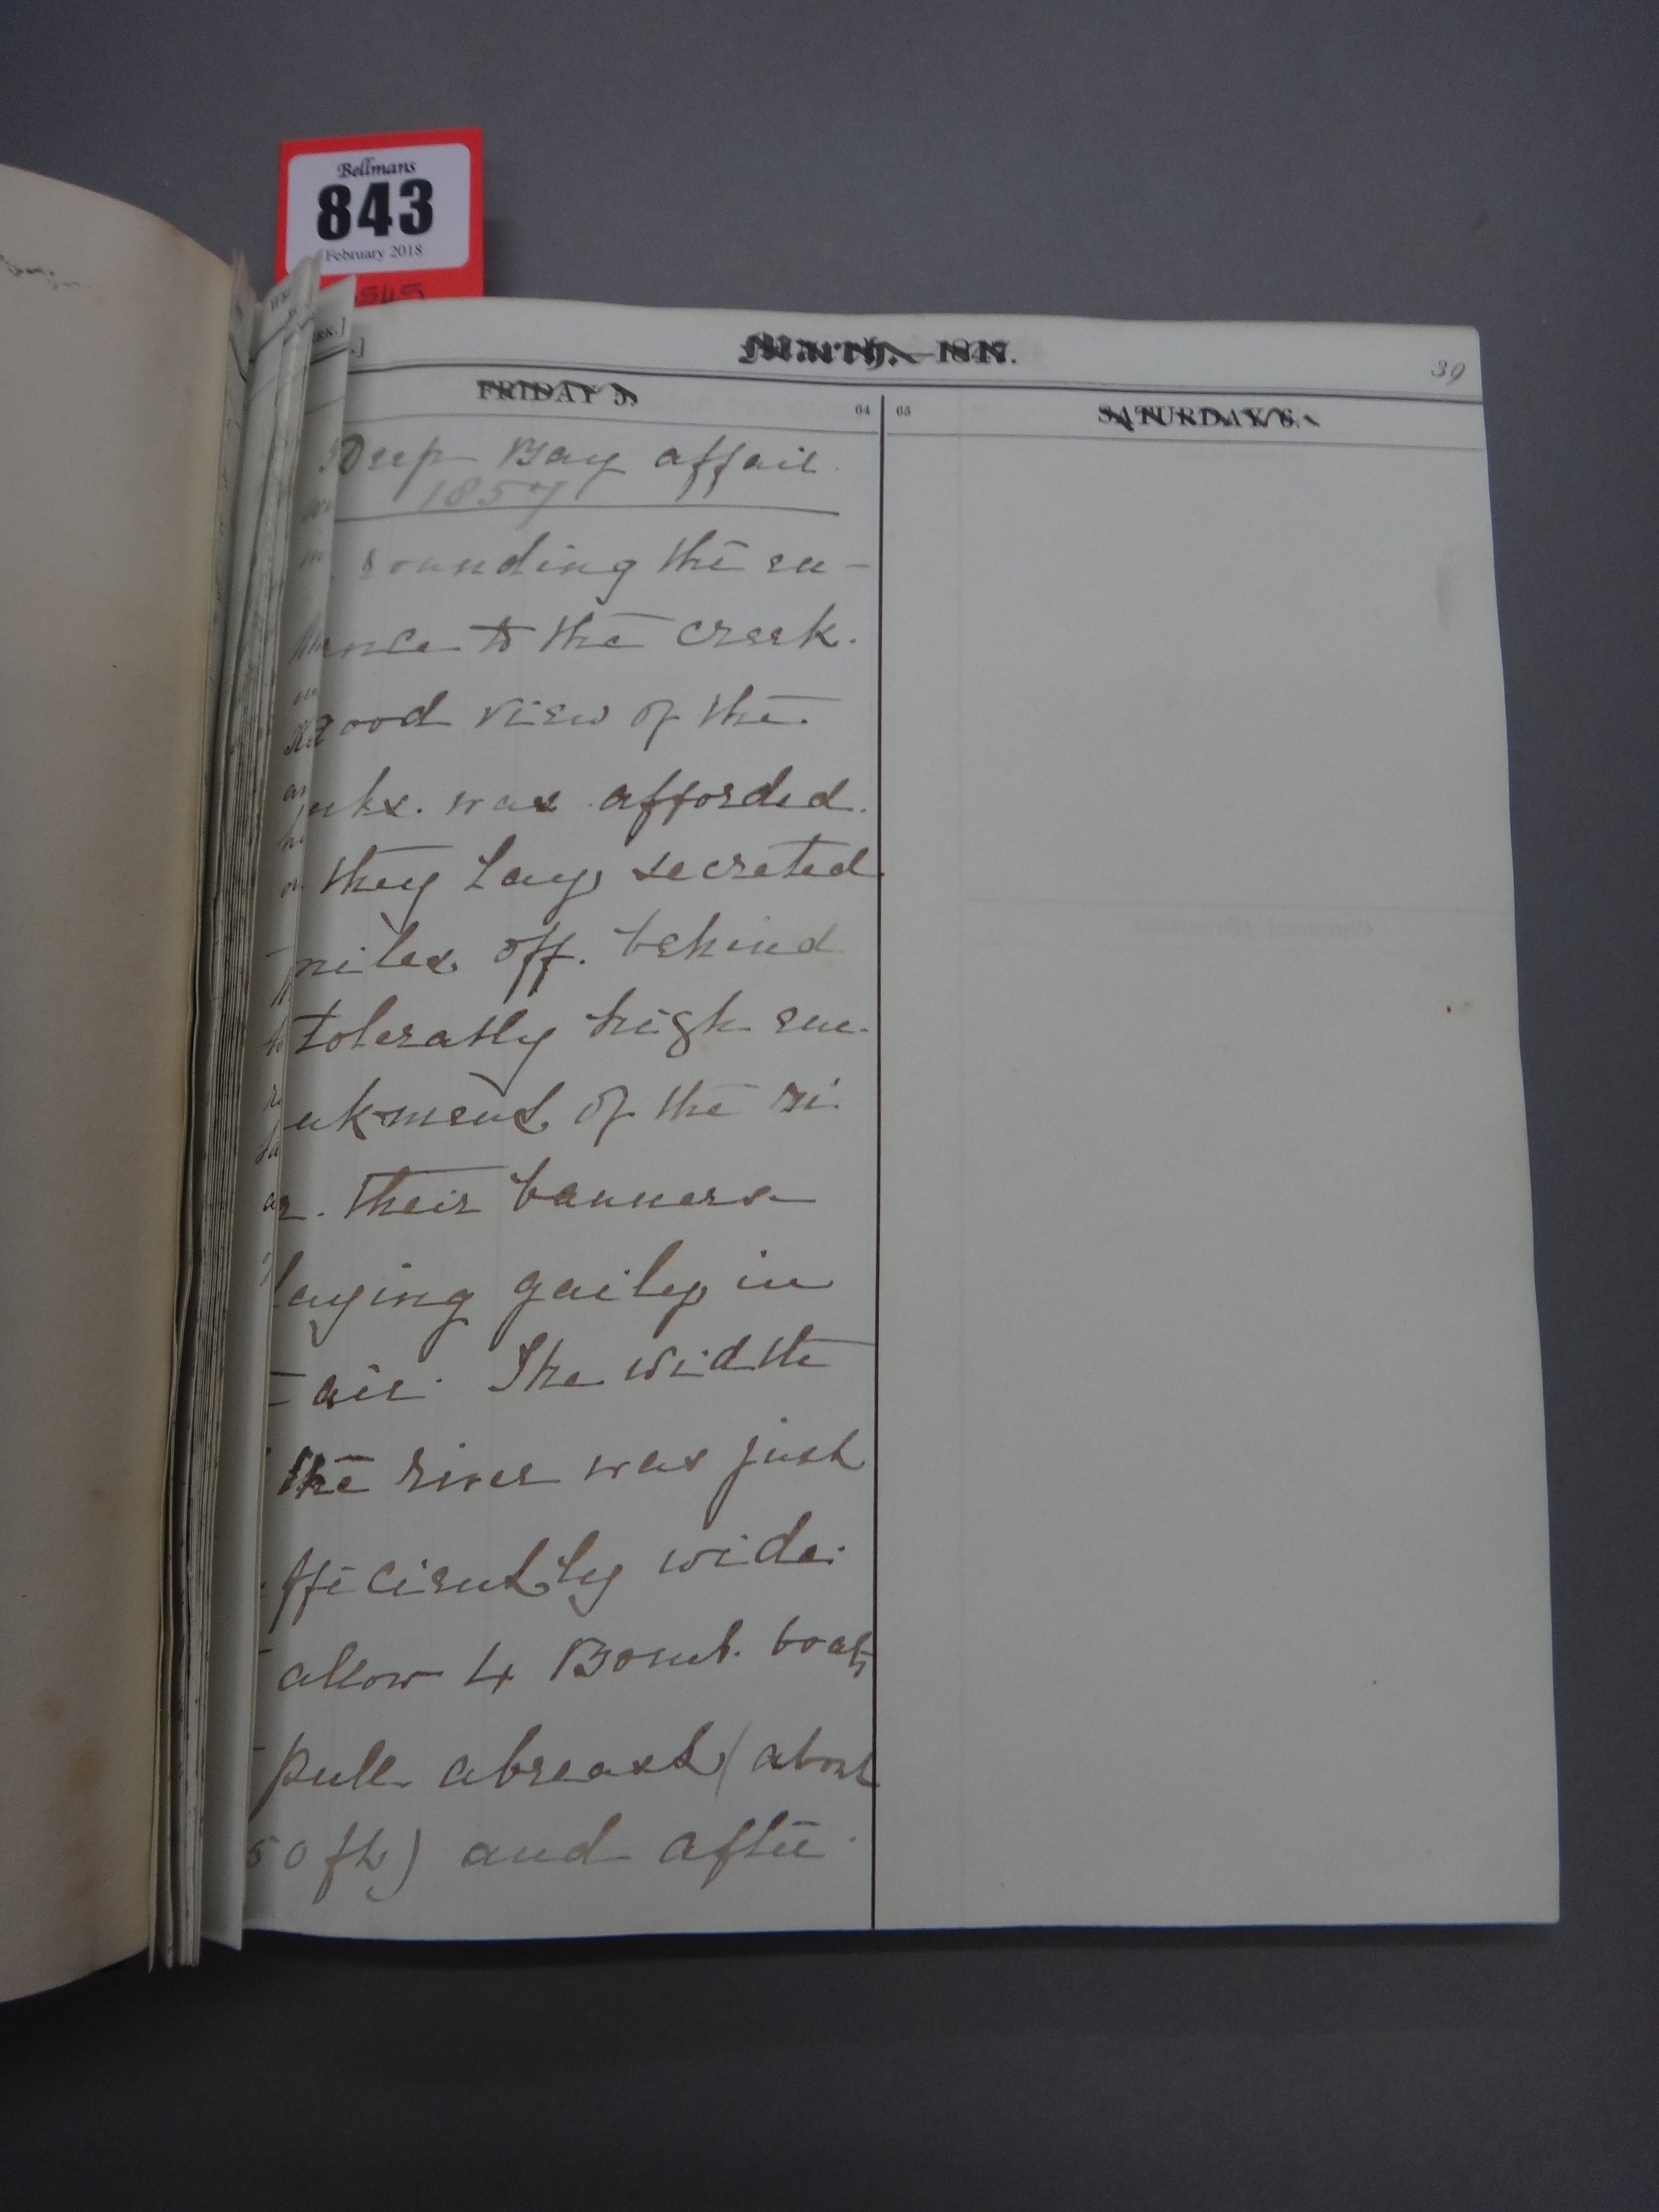 Bellmans
843
February 2018
545
March. 1847.
39
FRIDAY 5.
64
65
SATURDAY 6.
Deep Bay affair.
1857
rounding the en-
trance to the creek.
good view of the.
nks. was afforded.
they lay, secreted
miles. off. behind
tolerably high em.
nkment. of the ri.
er. their banners
laying gaily, in
air. The width
the river was just
fficiently wide.
allow 4 Bomb. boats
pull abreast (about
50 ft) and after.